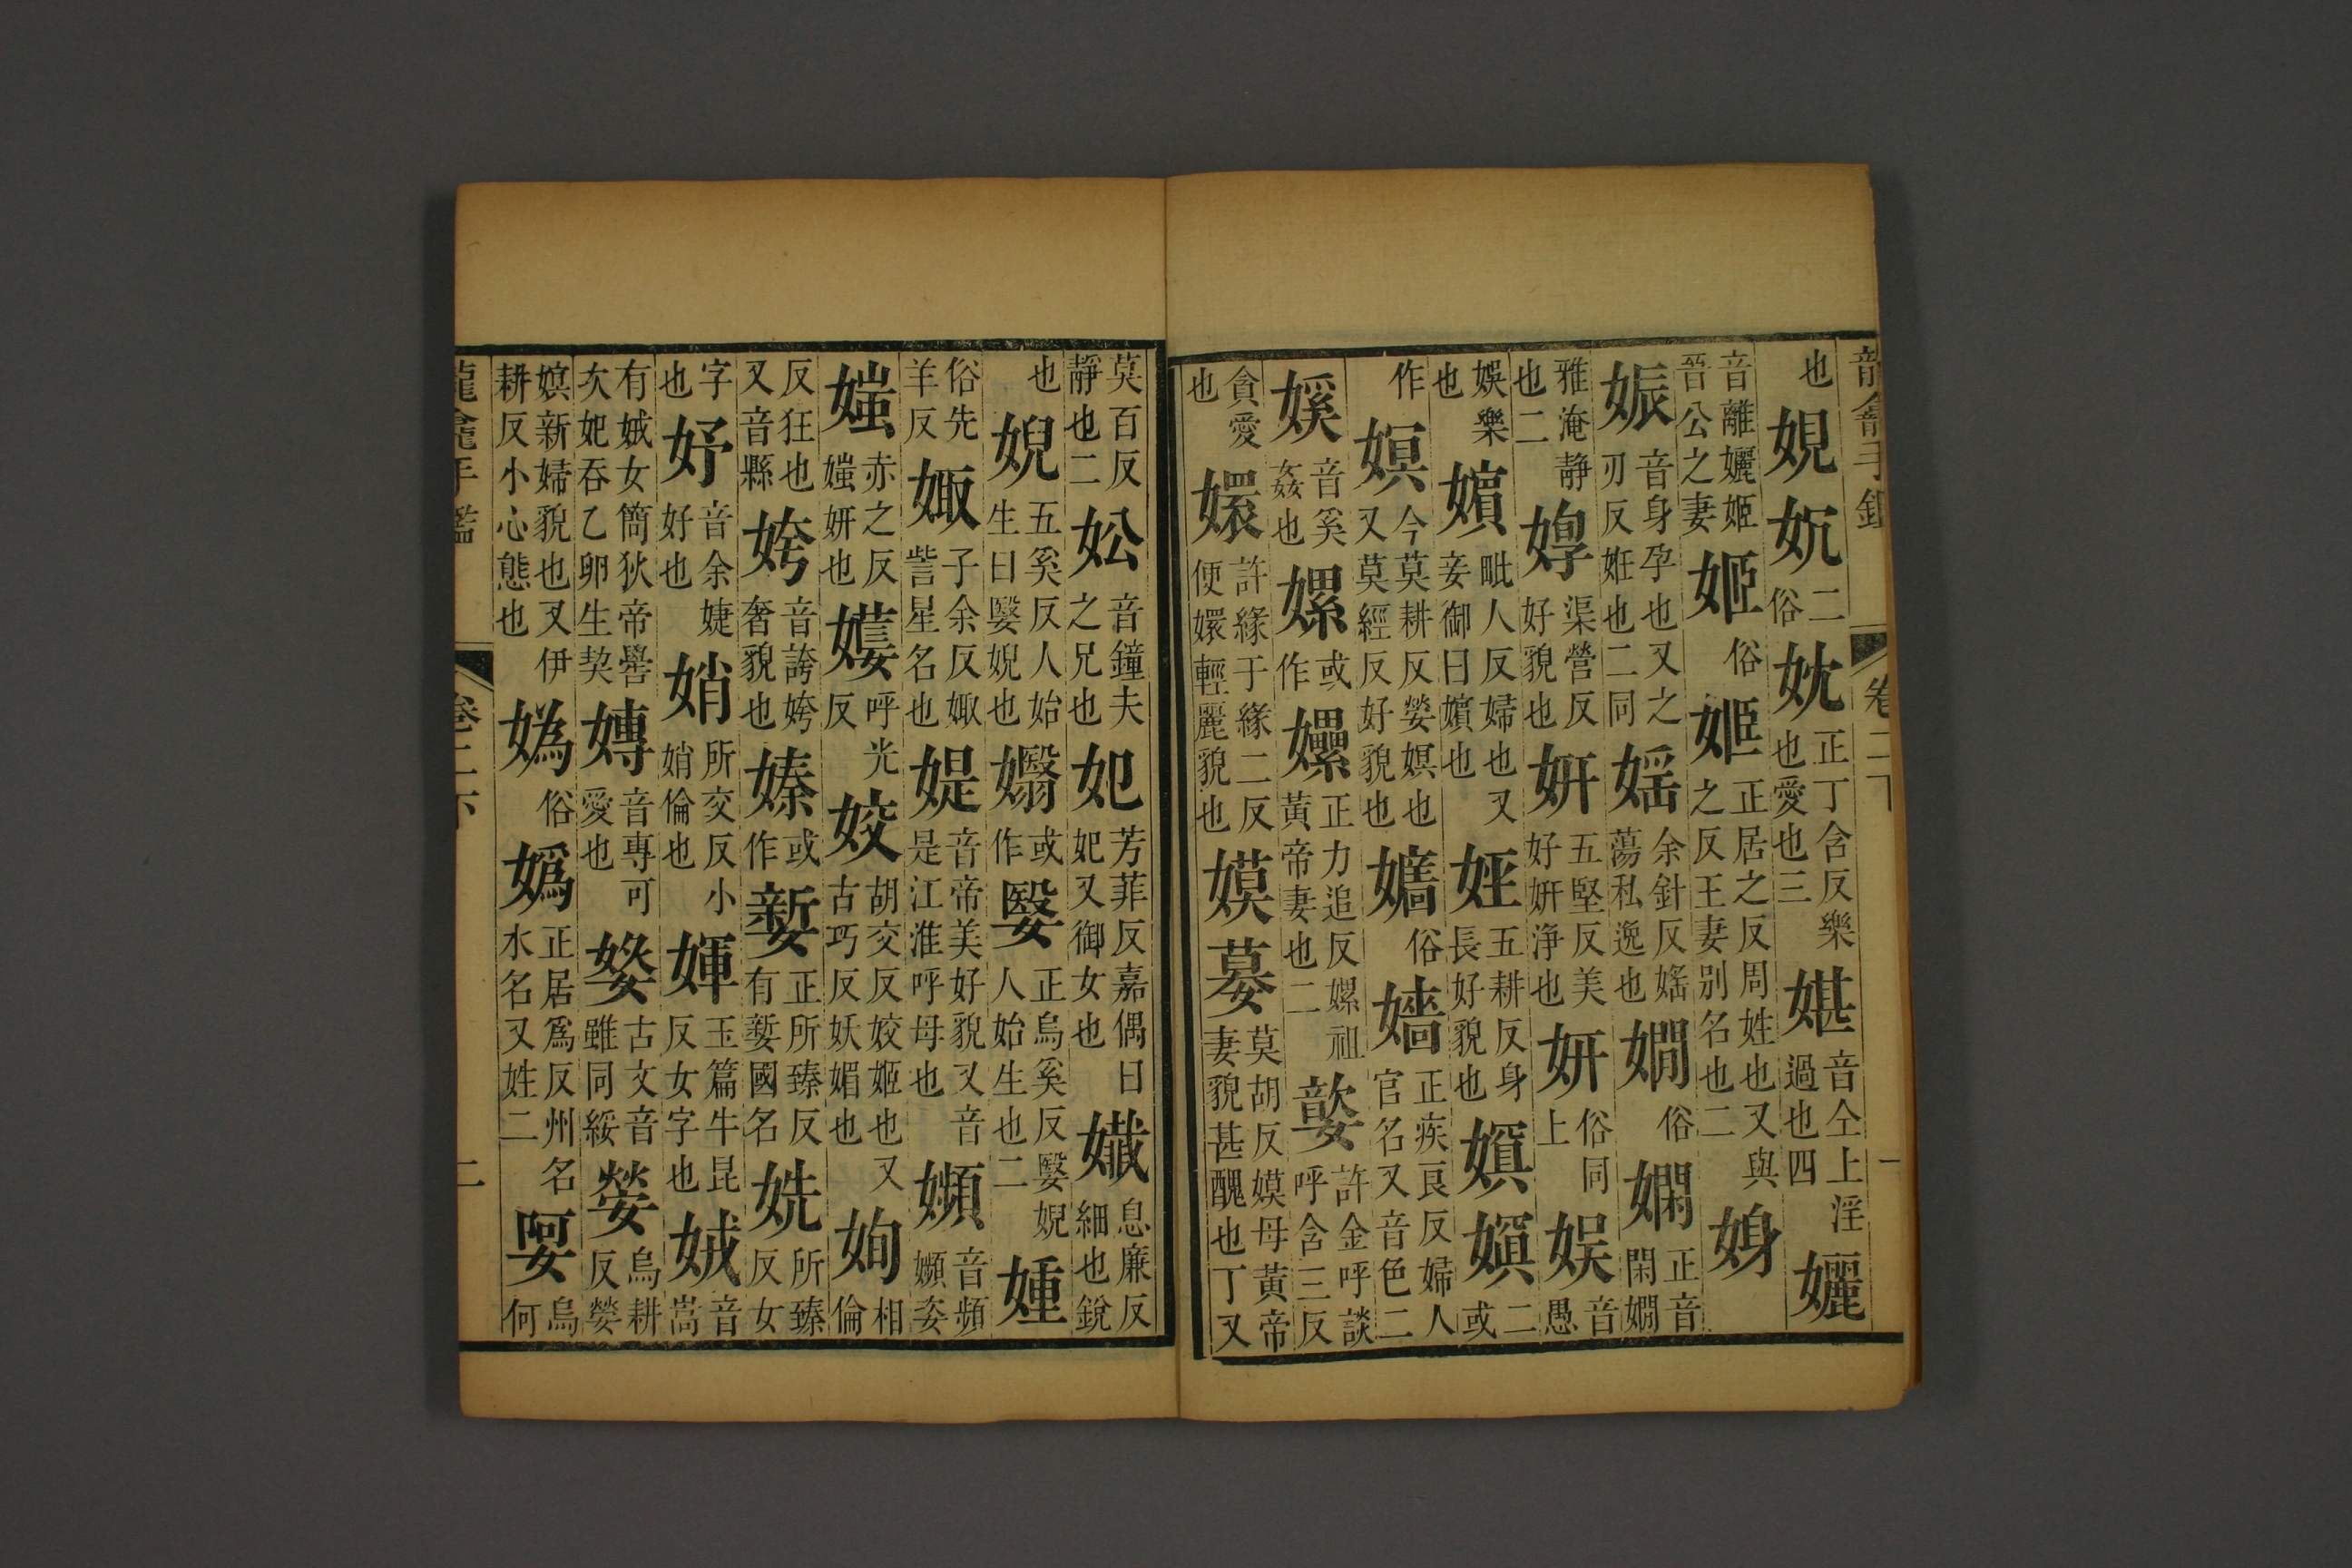 龍龕手鑑 卷二下 一
也娊妧二俗妉正丁含反樂也愛也三媅音仝上淫過也四孋
音離孋姬晉公之妻姬俗姬正居之反周姓也又與之反王妻別名也二㛛
娠音身孕也又之刃反妊也二同婬余針反婬蕩私逸也嫺俗嫻正音閑嫺
雅淹静也二㜁渠營反好貌也姸五堅反美好姸浄也妍俗同上娱音愚
娛樂也嬪毗人反婦也又妾御曰嬪也娙五耕反身長好貌也嫇嫇二或
作嫇今莫耕反嫈嫇也又莫經反好貌也嬙俗嬙正疾良反婦人官名又音色二
媛音奚姦也嫘或作㜼正力追反嫘祖黃帝妻也二㜝許金呼談呼含三反
貪愛也嬛許緣于緣二反便嬛輕麗貌也嫫㜈莫胡反嫫母黃帝妻貌甚醜也丁又
莫百反靜也二妐音鐘夫之兄也妃芳菲反嘉偶曰妃又御女也孅息廉反細也銳
也婗五奚反人始生曰嫛婗也嫛或作嫛正烏奚反嫛婗人始生也二媑
俗先羊反娵子余反娵訾星名也媞音帝美好貌又音是江淮呼母也嬪音頻嬪姿
媸赤之反媸妍也㜬呼光反姣胡交反姣姬也又古巧反妖媚也姰相倫
反狂也又音縣姱音誇姱奢貌也嫀或作㜪正所臻反有㜪國名姺所臻反女
字也妤音余婕妤好也娋所交反小娋偷也媈玉篇牛昆反女字也娀音嵩
有娀女簡狄帝嚳次妃吞乙卵生契嫥音專可愛也㛐古文音雖同綏嫈烏耕反嫈
嫇新婦貌也又伊耕反小心態也媯俗嬀正居爲反州名水名又姓二娿烏何
龍龕手鑑 卷二下 二